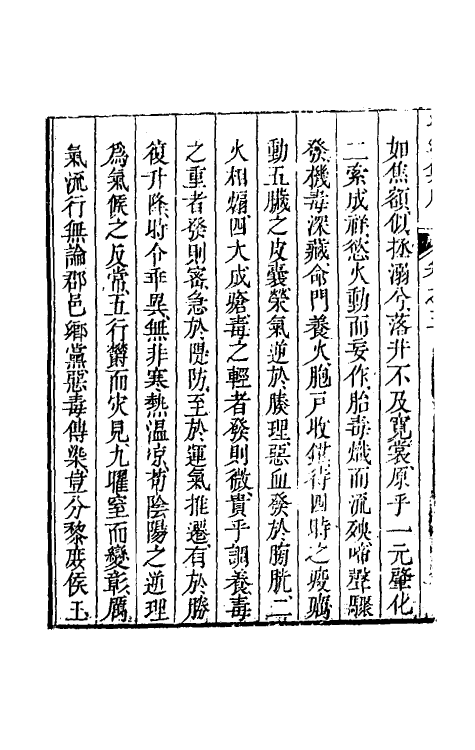 如焦額似拯溺兮落井不及寛裳原乎一元肇化
二索成祥慾火動而妄作胎毒熾而流殃啼聲驟
發機毒深藏命門養火胞戸收鋩待四時之㾮癘
動五臟之皮囊榮氣逆於腠理惡血發於膀胱二
火相煽四大成瘡毒之輕者發則微貴乎調養毒
之重者發則密急於隄防至於運氣推遷有於勝
復升降時令乖異無非寒熱温凉苟陰陽之逆理
為氣候之反常五行鬱而灾見九曜窒而變彰厲
氣流行無論郡邑鄉黨惡毒傳染豈分黎庶侯王